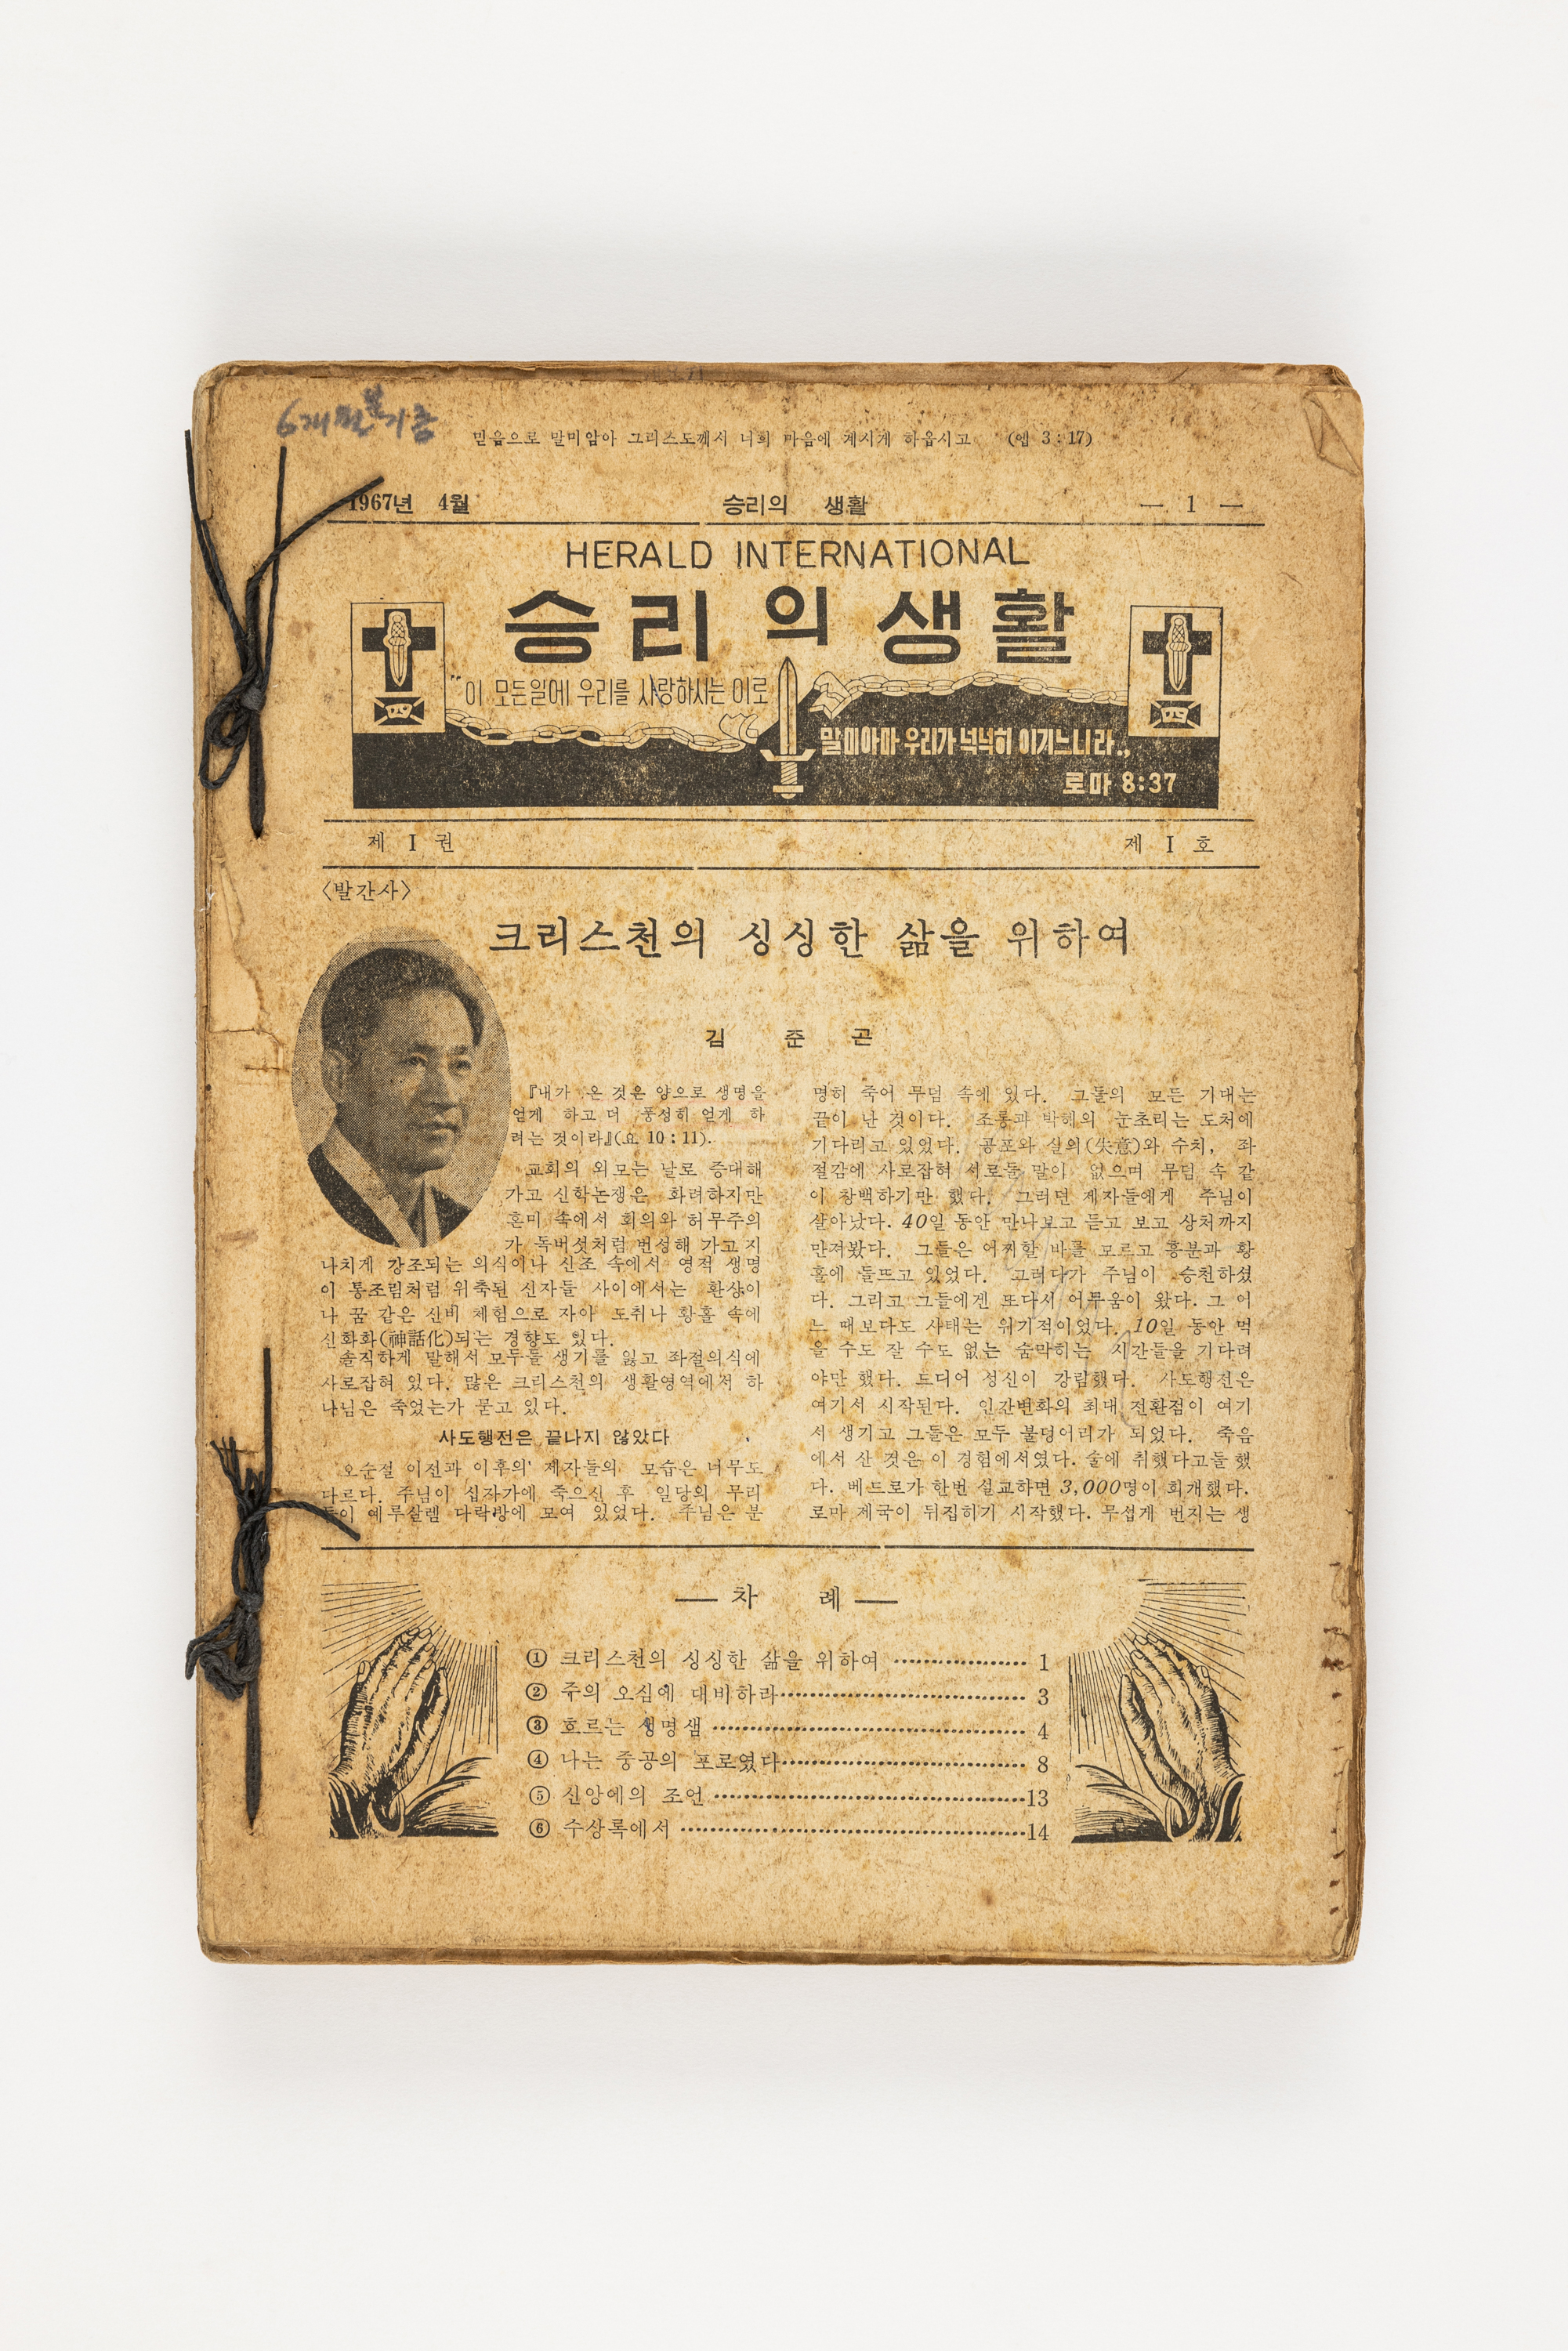 6개월분 기증
믿음으로 말미암아 그리스도께서 너희 마음에 계시게 하옵시고 (엡 3:17)
1967년 4월 승리의 생활 — 1 —
HERALD INTERNATIONAL
승리의 생활
"이 모든일에 우리를 사랑하시는 이로
말미아마 우리가 넉넉히 이기느니라.,
로마 8:37
四
四
제 I 권 제 I 호
〈발간사〉
크리스천의 싱싱한 삶을 위하여
김 준 곤
『내가 온 것은 양으로 생명을
얻게 하고 더 풍성히 얻게 하
려는 것이라』(요 10:11).
교회의 외모는 날로 증대해
가고 신학논쟁은 화려하지만
혼미 속에서 회의와 허무주의
가 독버섯처럼 번성해 가고 지
나치게 강조되는 의식이나 신조 속에서 영적 생명
이 통조림처럼 위축된 신자들 사이에서는 환상이
나 꿈 같은 신비 체험으로 자아 도취나 황홀 속에
신화화(神話化)되는 경향도 있다.
솔직하게 말해서 모두들 생기를 잃고 좌절의식에
사로잡혀 있다. 많은 크리스천의 생활영역에서 하
나님은 죽었는가 묻고 있다.
사도행전은 끝나지 않았다
오순절 이전과 이후의 제자들의 모습은 너무도
다르다. 주님이 십자가에 죽으신 후 일당의 무리
들이 예루살렘 다락방에 모여 있었다. 주님은 분
명히 죽어 무덤 속에 있다. 그들의 모든 기대는
끝이 난 것이다. 조롱과 박해의 눈초리는 도처에
기다리고 있었다. 공포와 실의(失意)와 수치, 좌
절감에 사로잡혀 서로들 말이 없으며 무덤 속 같
이 창백하기만 했다. 그러던 제자들에게 주님이
살아났다. 40일 동안 만나보고 듣고 보고 상처까지
만져봤다. 그들은 어찌할 바를 모르고 흥분과 황
홀에 들뜨고 있었다. 그러다가 주님이 승천하셨
다. 그리고 그들에겐 또다시 어두움이 왔다. 그 어
느 때보다도 사태는 위기적이었다. 10일 동안 먹
을 수도 잘 수도 없는 숨막히는 시간들을 기다려
야만 했다. 드디어 성신이 강림했다. 사도행전은
여기서 시작된다. 인간변화의 최대 전환점이 여기
서 생기고 그들은 모두 불덩어리가 되었다. 죽음
에서 산 것은 이 경험에서였다. 술에 취했다고들 했
다. 베드로가 한번 설교하면 3,000명이 회개했다.
로마 제국이 뒤집히기 시작했다. 무섭게 번지는 생
— 차 례 —
① 크리스천의 싱싱한 삶을 위하여 …………… 1
② 주의 오심에 대비하라…………………………… 3
③ 흐르는 생명샘 …………………………………… 4
④ 나는 중공의 포로였다…………………………… 8
⑤ 신앙에의 조언 ……………………………………13
⑥ 수상록에서 ………………………………………14